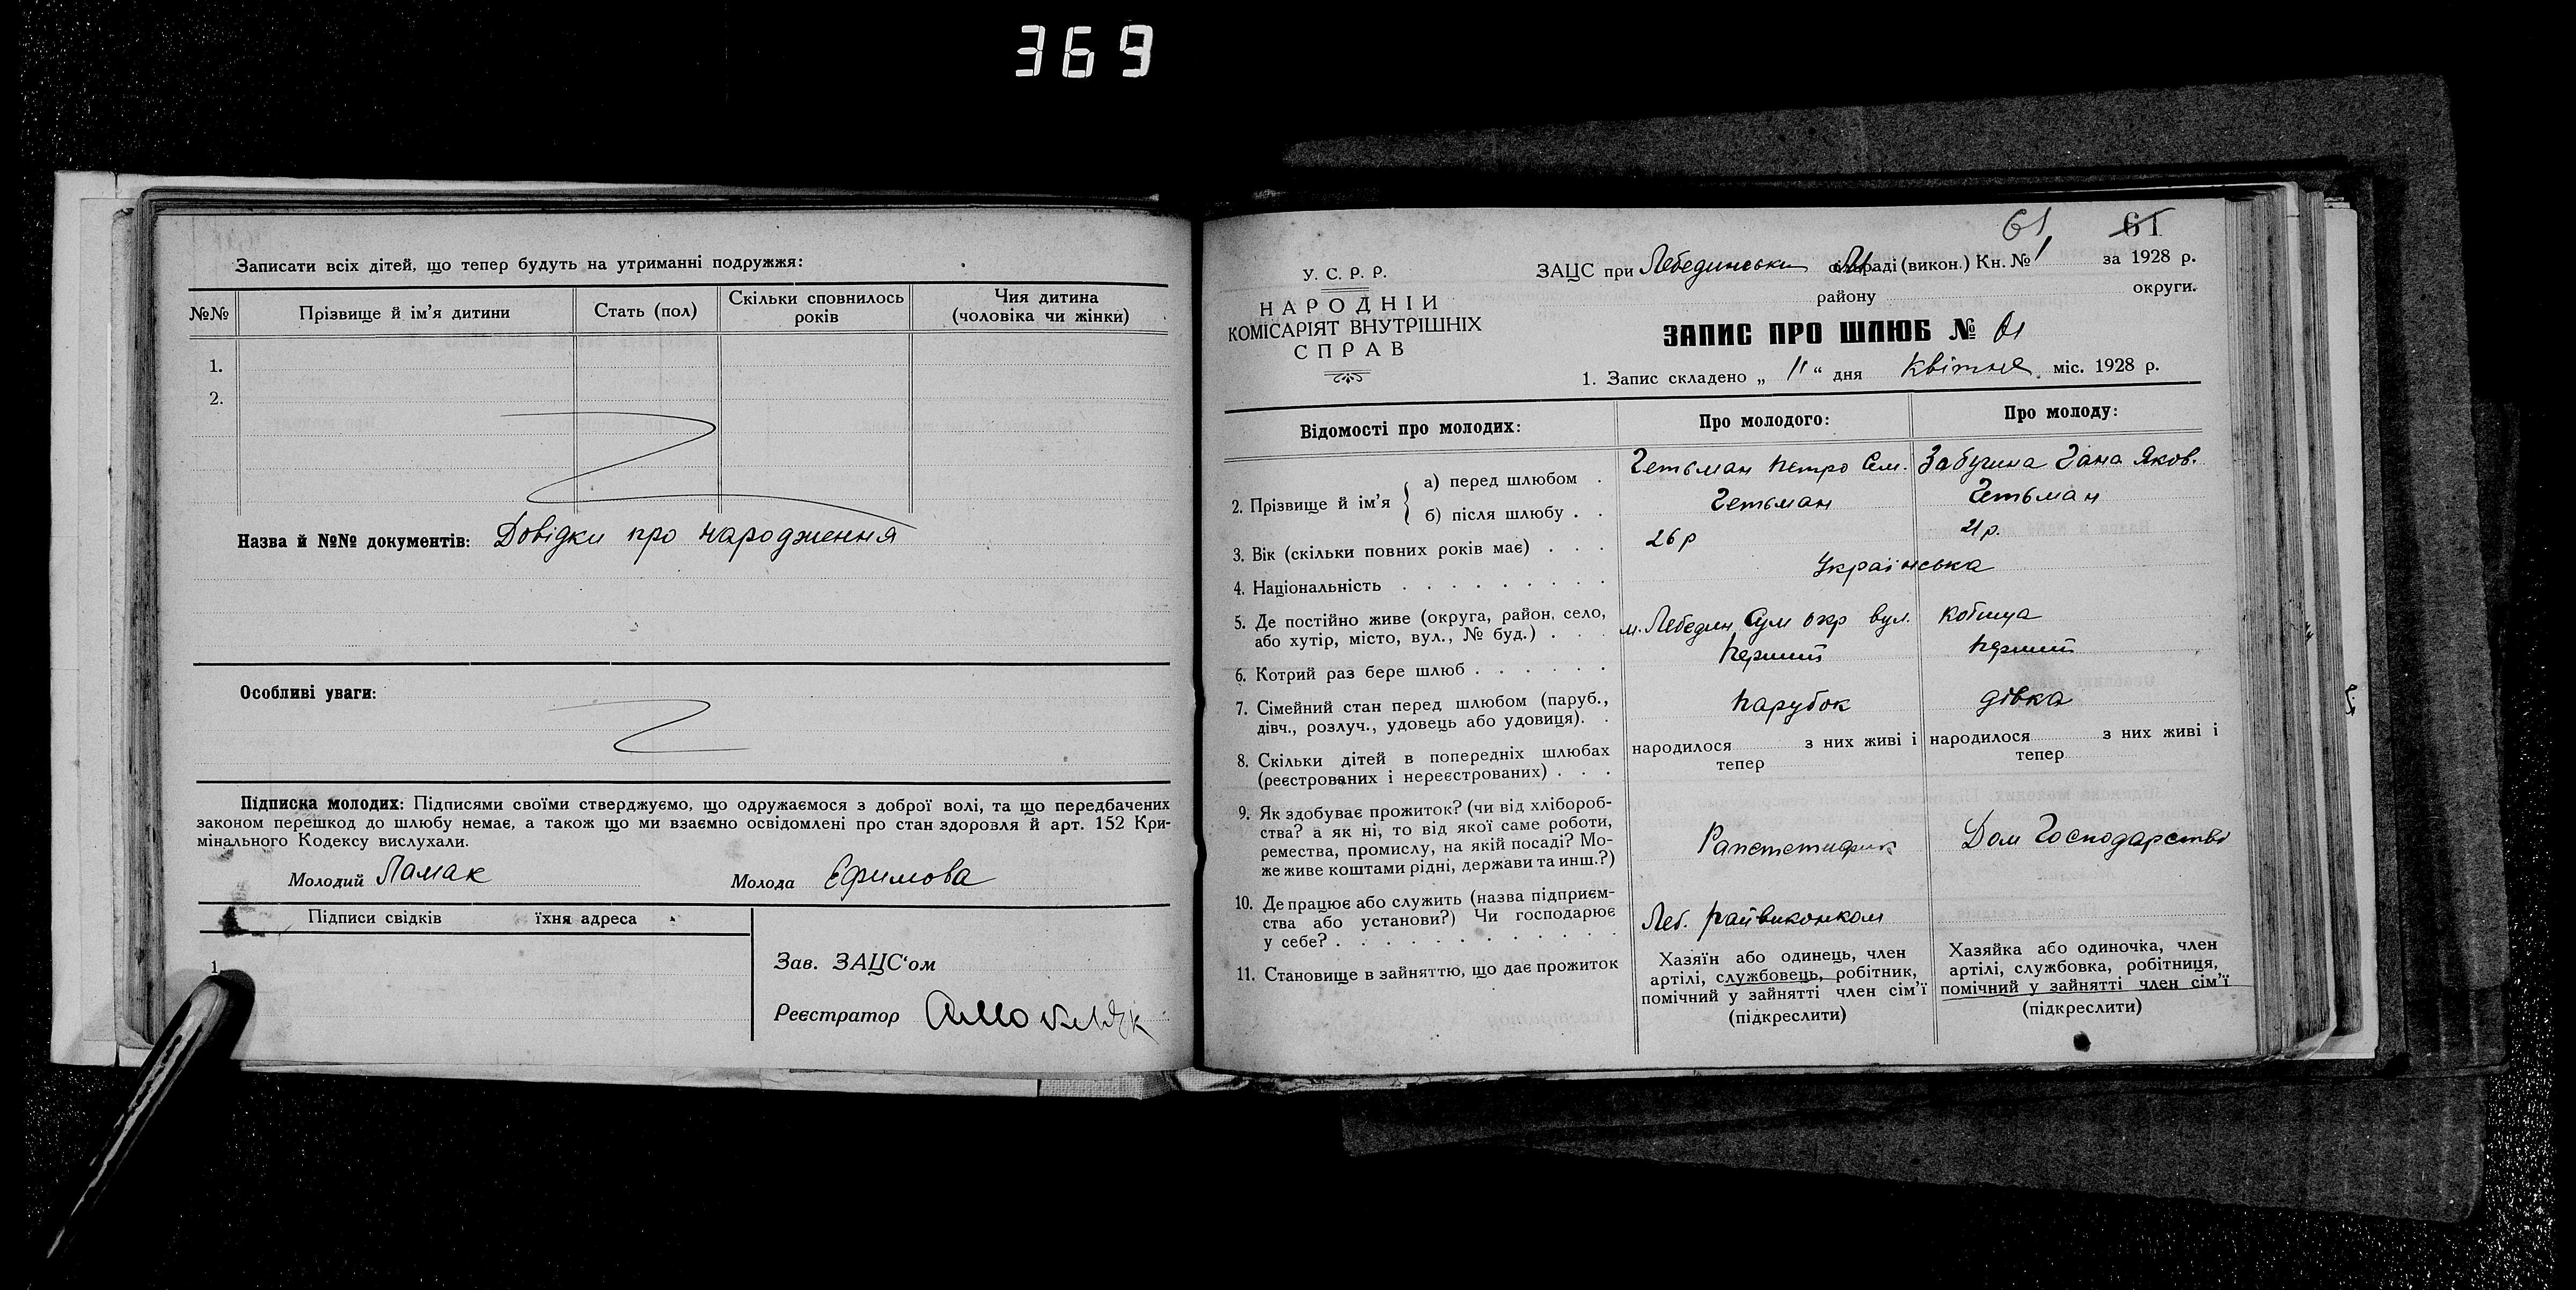 369
Записати всіх дітей, що тепер будуть на утриманні подружжя:
№№ Прізвище й ім'я дитини Стать (пол) Скільки сповнилось років Чия дитина (чоловіка чи жінки)
1.
2.
Назва й №№ документів: Довідки про народження
Особливі уваги:
Підписка молодих: Підписями своїми стверджуємо, що одружаємося з доброї волі, та що передбачених
законом перешкод до шлюбу немає, а також що ми взаємно освідомлені про стан здоровля й арт. 152 Кри-
мінального Кодексу вислухали.
Молодий Ламак Молода Єфимова
Підписи свідків їхня адреса
1.
Зав. ЗАЦС'ом
Реєстратор
61 61
У. С. Р. Р.
НАРОДНІЙ
КОМІСАРІЯТ ВНУТРІШНІХ
СПРАВ
ЗАЦС при Лебединськи раді (викон.) Кн. № 1 за 1928 р.
району округи.
ЗАПИС ПРО ШЛЮБ № 61
1. Запис складено „ 11 “ дня квітня міс. 1928 р.
Відомості про молодих: Про молодого: Про молоду:
2. Прізвище й ім'я
а) перед шлюбом . Гетьман Петро Сем. Забугина Гана Яков.
б) після шлюбу . . Гетьман Гетьман
3. Вік (скільки повних років має) . . . 26 р 21 р.
4. Національність . . . . . . . . . Українська
5. Де постійно живе (округа, район, село,
або хутір, місто, вул., № буд.) . . . м. Лебедин Сум окр вул. Кобища
6. Котрий раз бере шлюб . . . . . . Перший Перший
7. Сімейний стан перед шлюбом (паруб.,
дівч., розлуч., удовець або удовиця). . Парубок дівка
8. Скільки дітей в попередніх шлюбах
(реєстрованих і нереєстрованих) . . .
народилося з них живі і тепер
народилося з них живі і тепер
9. Як здобуває прожиток? (чи від хлібороб-
ства? а як ні, то від якої саме роботи,
ремества, промислу, на якій посаді? Мо-
же живе коштами рідні, держави та инш.?)
Дом Господарство
10. Де працює або служить (назва підприєм-
ства або установи?) Чи господарює
у себе? . . . . . . . . . . . .
Леб. Райвиконком
11. Становище в зайняттю, що дає прожиток
Хазяїн або одинець, член
артілі, службовець, робітник,
помічний у зайнятті член сім'ї
(підкреслити)
Хазяйка або одиночка, член
артілі, службовка, робітниця,
помічний у зайнятті член сім'ї
(підкреслити)